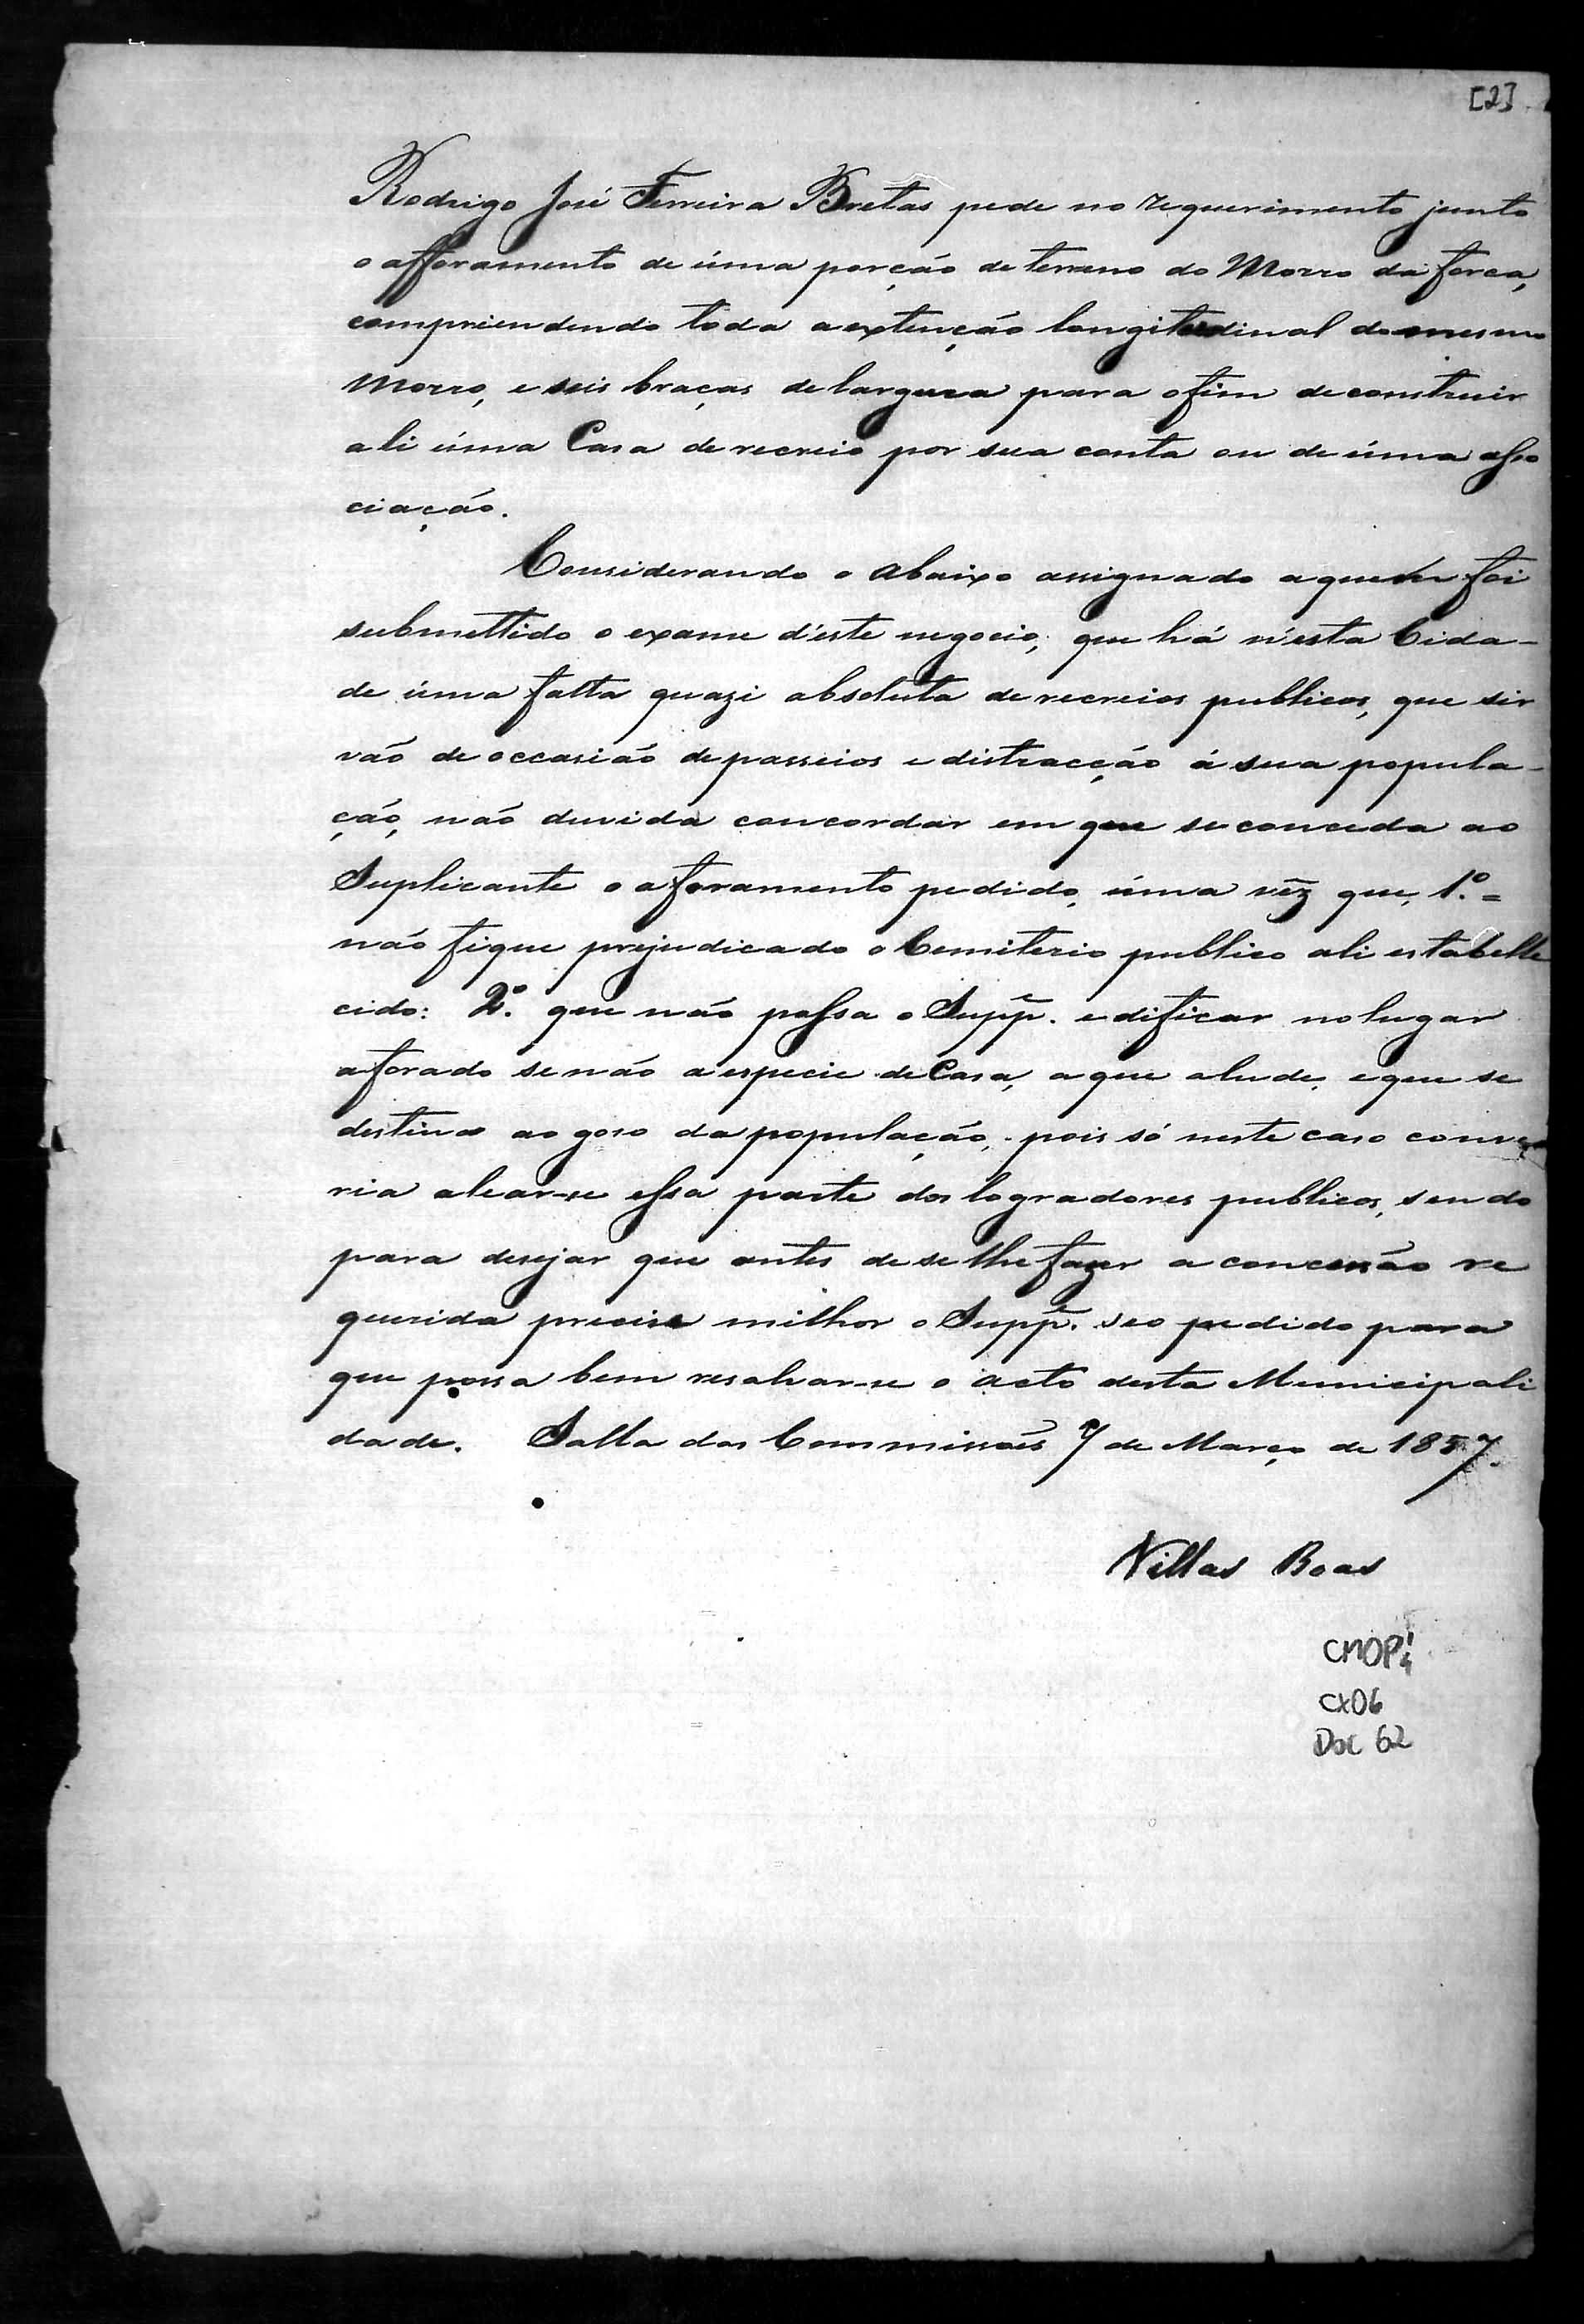 [2]
Rodrigo José Ferreira Bretas pede no requerimento junto
o afforamento de úma porção de terreno do Morro da forca,
comprienden do toda a extenção longitudinal do mesmo
Morro, e seis braças de largura para o fim de construir
ali úma Casa de recreio por sua conta ou de úma asso
ciação.
Considerando o abaixo assignado a quem foi
submettido o exame d'este negocio, que há n'esta Cida-
de úma falta quazi absoluta de recreios publicos, que sir
vão de occasião de passeios e distracção á sua popula-
ção, não duvida concordar em que se conceda ao
Suplicante o aforamento pedido, úma vez que, 1º =
não fique prejudicado o Cemiterio publico ali estabelle
cido: 2º. que não possa o Suppe. edificar no lugar
aforado senão a especie de Casa, a que alude, e que se
destina ao goso da população, pois só neste caso conve
ria alear-se essa parte dos logradores publicos, sendo
para desejar que antes de se lhe fazer a concessão re
querida precise milhor o Suppe. seo pedido para
que possa bem resalvar-se o acto desta Municipali
dade. Salla das Commissões 7 de Março de 1857.
Villas Boas
CMOP
CX06
Doc 62